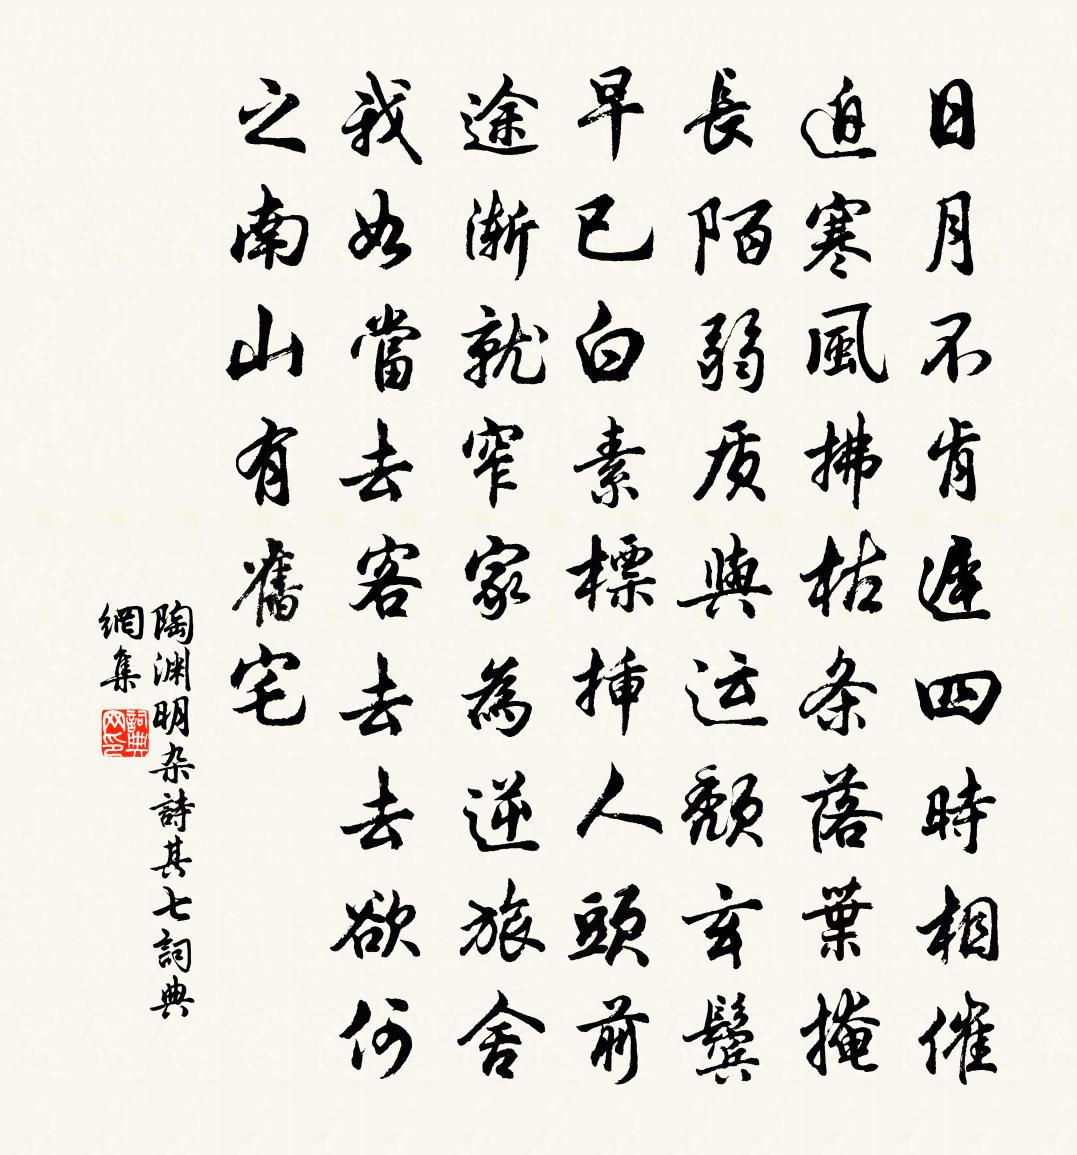 日月不肯遲四時相催
迫寒風拂枯条落葉掩
長陌弱质與运頹玄鬢
早已白素標插人頭前
途渐就窄家為逆旅舍
我如當去客去去欲何
之南山有舊宅
陶渊明杂詩其七詞典
網集
詞典
网印